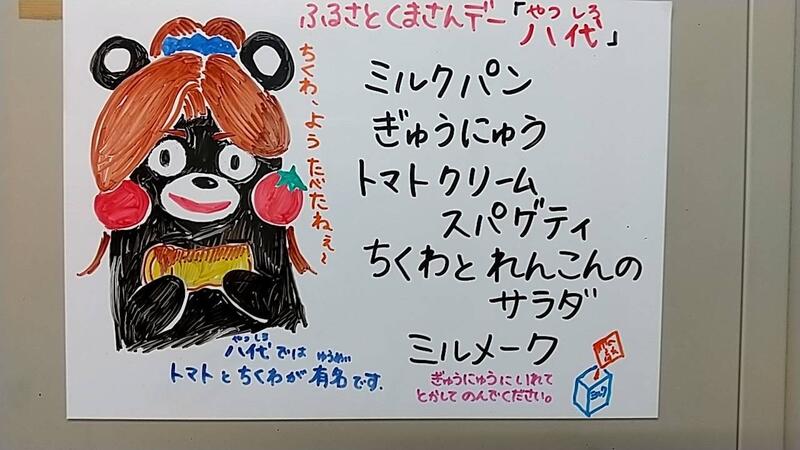 ふるさとくまさんデー「八代」
やつしろ
ちくわ、ようたべたねぇ～
ミルクパン
ぎゅうにゅう
トマトクリーム
スパゲティ
ちくわとれんこんの
サラダ
ミルメーク
ぎゅうにゅうにいれて
とかしてのんでください。
ミルク
やつしろ
八代では
ゆうめい
トマトとちくわが有名です.